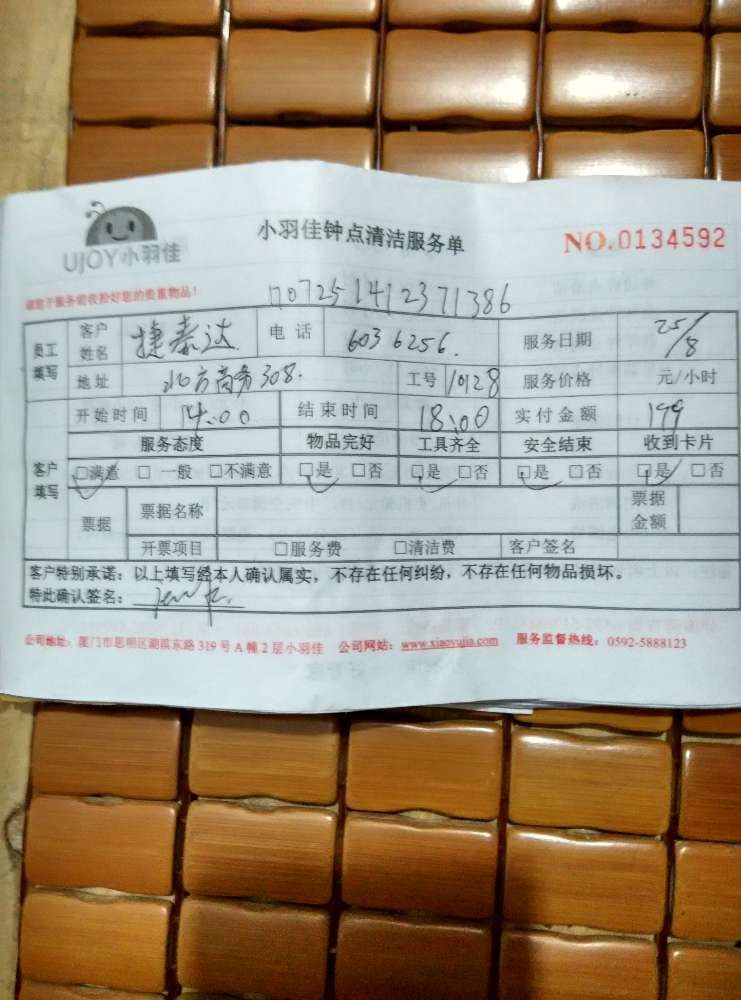 UJOY小羽佳
小羽佳钟点清洁服务单
NO.0134592
请您于服务前收捡好您的贵重物品！
170725141237 1386
员工填写 客户姓名 捷泰达 电话 6036256. 服务日期 25/8
地址 北方商务308. 工号 10128 服务价格 元/小时
开始时间 14:00 结束时间 18:00 实付金额 199
客户填写 服务态度 物品完好 工具齐全 安全结束 收到卡片
□满意 □一般 □不满意 □是 □否 □是 □否 □是 □否 □是 □否
票据 票据名称 票据金额
开票项目 □服务费 □清洁费 客户签名
客户特别承诺：以上填写经本人确认属实，不存在任何纠纷，不存在任何物品损坏。
特此确认签名：
公司地址：厦门市思明区湖滨东路319号A幢2层小羽佳 公司网站：www.xiaoyujia.com 服务监督热线：0592-5888123